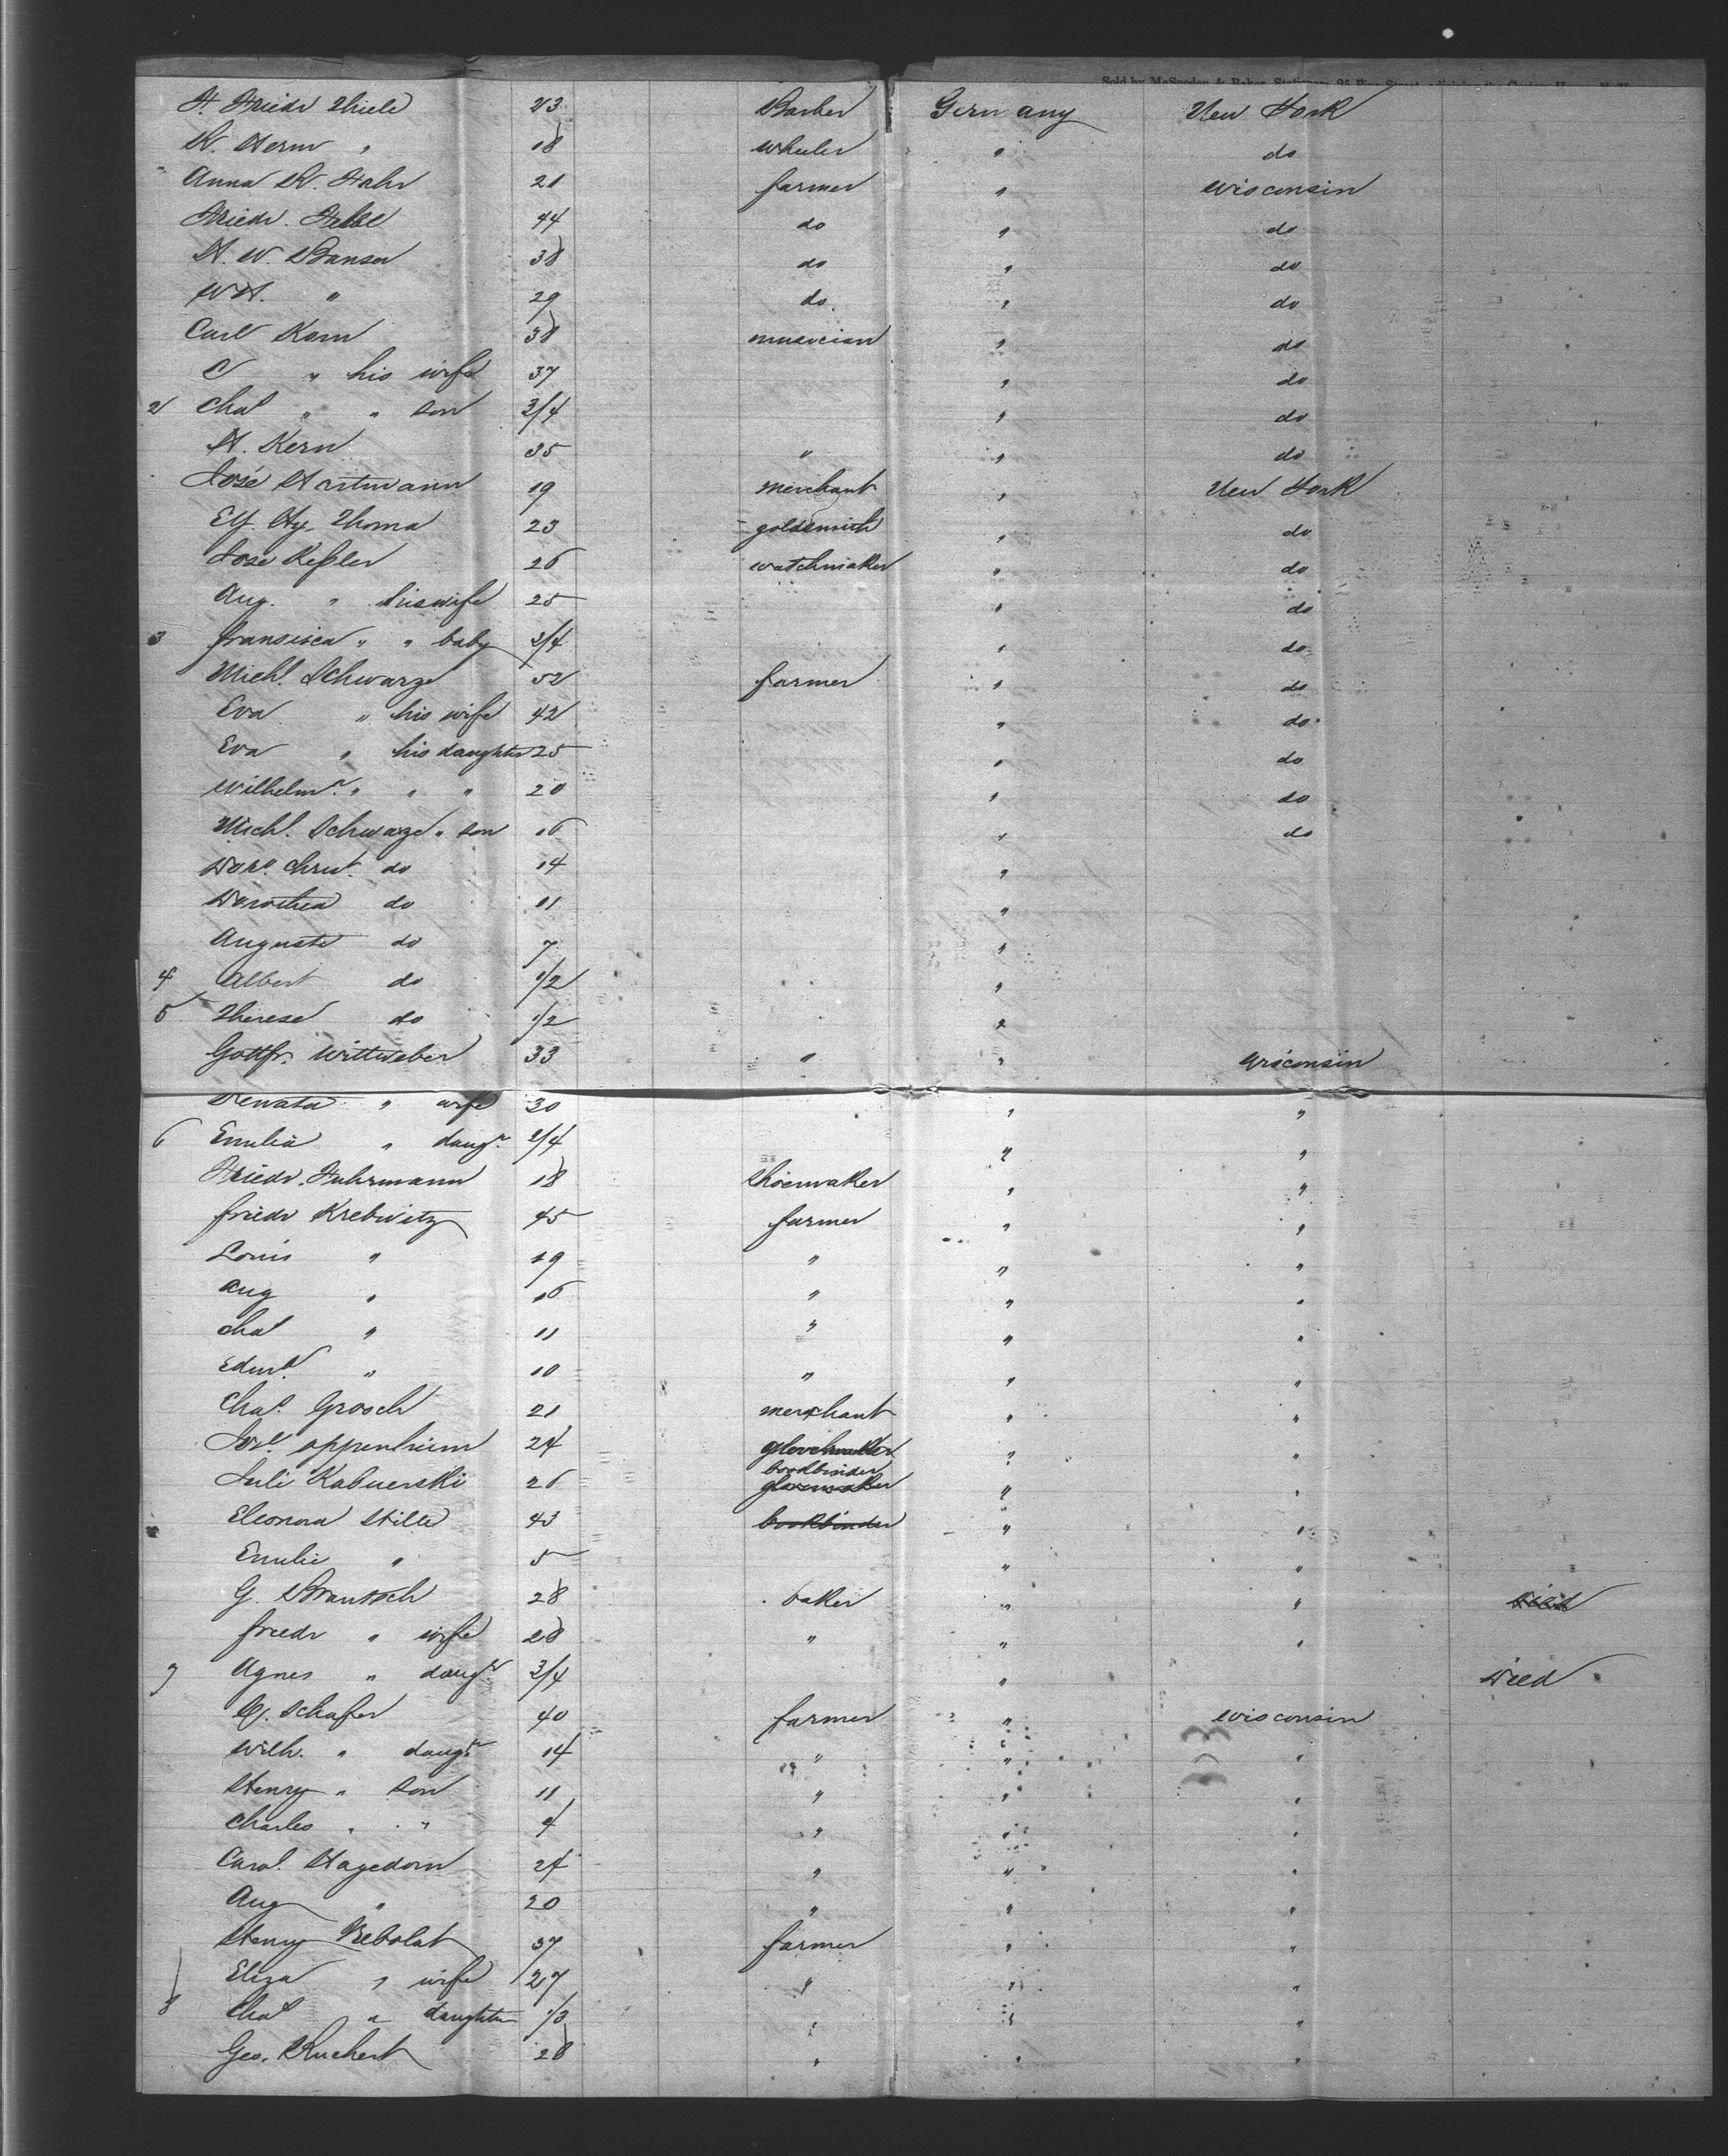 Sold by McSpedon & Baker, Stationers, 25 Pine Street
H. Friedr Thiele 23 Barber Germany New York
H. Herm " 18 wheeler " do
Anna W. Hahr 21 farmer " Wisconsin
Friedr. 44 do " do
H. W. Banser 38 do " do
WH. " 29 do " do
Carl Korn 38 musician " do
C " his wife 37 " do
2 Chas " " son 3/4 " do
H. Kern 35 " " do
José Hartmann 19 merchant " New York
Thoma 23 goldsmith " do
José Keßler 26 watchmaker " do
Aug. " his wife 25 " do
3 fransisca " " baby 3/4 " do
Michl. Schwarze 52 farmer " do
Eva " his wife 42 " do
Eva " his daughter 25 " do
Wilhelm.a " " " 20 " do
Michl. Schwarze " son 16 " do
Christ. do 14 "
Dorothea do 11 "
Auguste do 7 "
4 Albert do 1/2 "
5 Therese do 1/2 "
Gottfr. Wittweber 33 " " Wisconsin
Renata " wife 30 " "
6 Emilia " daugr. 2/4 " "
Friedr. Fuhrmann 18 Shoemaker " "
friedr Krebwitz 45 farmer " "
Louis " 19 " " "
Aug " 16 " " "
Chas " 11 " " "
Edwd. " 10 " " "
Chas. Grosch 21 merchant " "
Jose. oppenheim 24 glovemaker " "
bookbinder
Juli Kabuerski 26 glovemaker " "
Eleonora Stille 43 bookbinder " "
Emilie " 5 " "
G. Brantsch 28 baker " " died
friedr " wife 28 " " "
7 Agnes " daugr. 3/4 " died
Schafer 40 farmer " Wisconsin
Wilh. " daugr. 14 " " "
Henry " son 11 " " "
Charles " " 4 " " "
Carol. Hagedorn 24 " " "
Aug " 20 " " "
Henry Nebolat 37 farmer " "
Eliza " wife 27 " " "
8 Chas " daughter 1/3 " " "
Geo. Ruchert 28 " " "